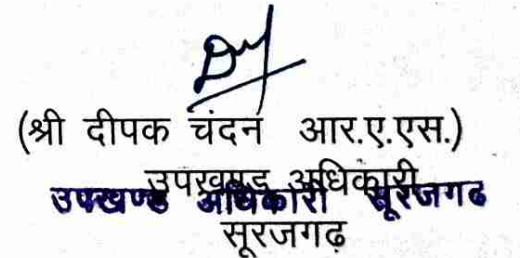 (श्री दीपक चंदन आर.ए.एस.)
उपखण्ड अधिकारी
उपखण्ड अधिकारी सूरजगढ
सूरजगढ़